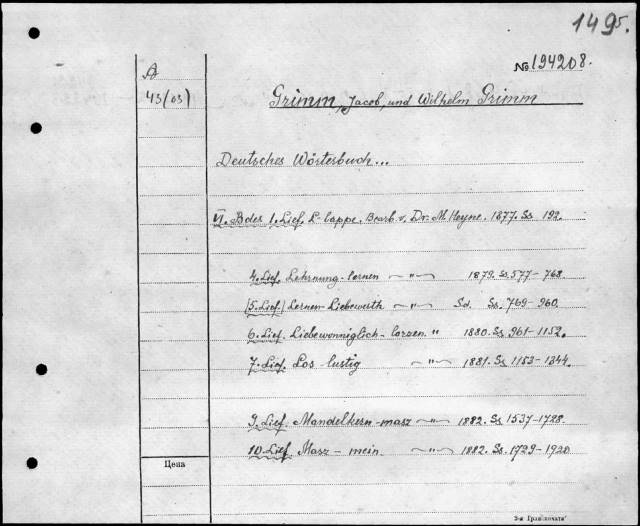 1495.
№ 194208.
A
43/03)
Grimm, Jacob, und Wilhelm Grimm
Deutsches Wörterbuch...
VI. Bdes 1. Lief. L-lappe. Bearb. v. Dr. M. Heyne. 1877. Ss. 192.
4. Lief. Lehrnung-lernen — " — 1879. Ss. 577-768.
(5. Lief.) Lernen-Liebewerth — " — Sd. Ss. 769-960.
6. Lief. Liebewonniglich-lorzen. " 1880. Ss. 961-1152.
7. Lief. Los-lustig — " — 1881. Ss. 1153-1344.
9. Lief. Mandelkern-masz — " — 1882. Ss. 1537-1728.
10. Lief. Masz - mein. — " — 1882. Ss. 1729-1920.
Цена
3-я Гравпочата